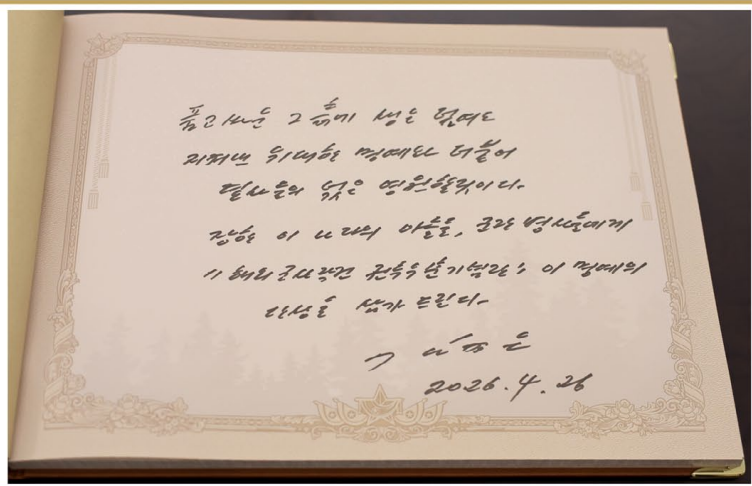 품고싸운 그 뜻에 생을 뭍여도
지켜낸 위대한 명예와 더불어
렬사들의 넋은 영원할것이다.
장한 이 나라의 아들들, 군관 병사들에게
《해외군사작전 전투위훈기념관》 이 명예의
단상을 삼가 드린다.
김정은
2026. 4. 26